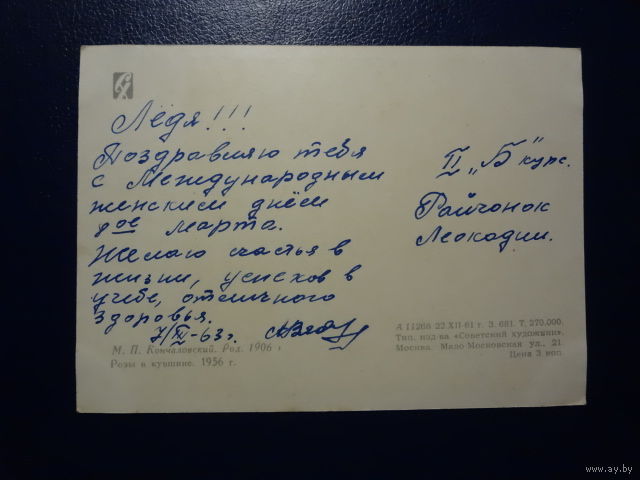 Лёдя!!!
Поздравляю тебя
с Международным
женским днём
8ое марта.
Желаю счастья в
жизни, успехов в
учебе, отличного
здоровья.
7/III-63г.
М. П. Кончаловский. Род. 1906 г.
Розы в кувшине. 1956 г.
II „Б“ курс.
Райчонок
Леокадии.
А 11266 22 XII-61 г. З. 681. Т. 270.000.
Тип. изд-ва «Советский художник».
Москва. Мало-Московская ул., 21
Цена 3 коп
www.ay.by